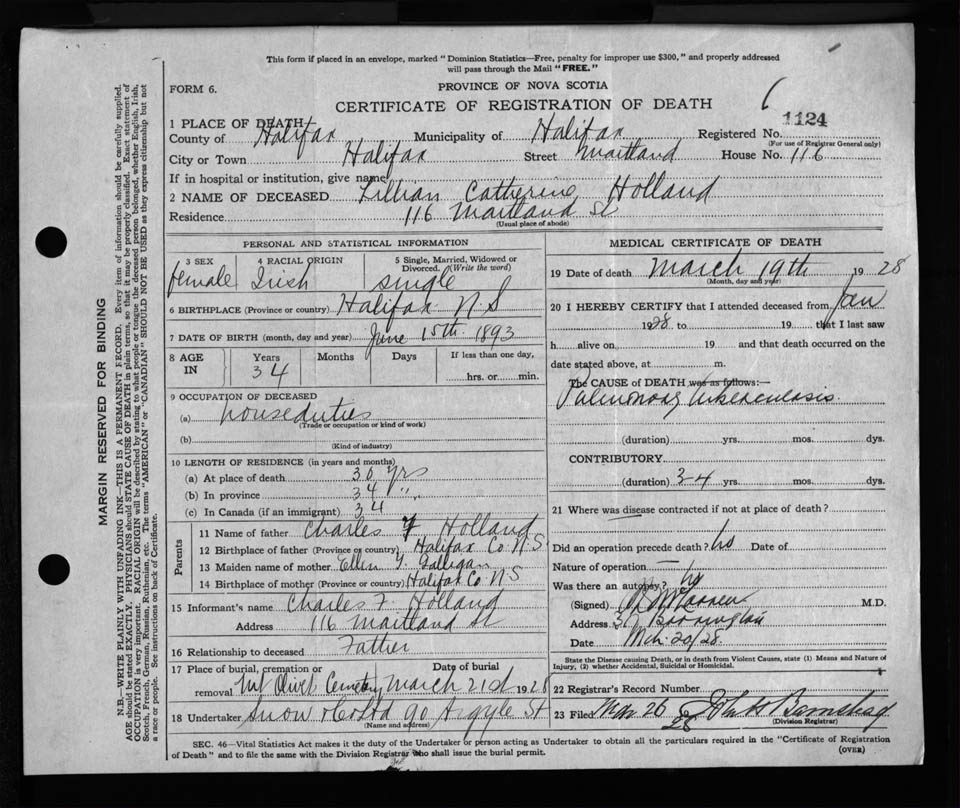 This form if placed in an envelope, marked "Dominion Statistics—Free, penalty for improper use $300," and properly addressed
will pass through the Mail "FREE."
FORM 6.
PROVINCE OF NOVA SCOTIA
CERTIFICATE OF REGISTRATION OF DEATH
1124
1 PLACE OF DEATH
County of Halifax Municipality of Halifax Registered No.
(For use of Registrar General only)
City or Town Halifax Street Maitland House No. 116
If in hospital or institution, give name
2 NAME OF DECEASED Lillian Catherine Holland
Residence 116 Maitland St
(Usual place of abode)
PERSONAL AND STATISTICAL INFORMATION
3 SEX 4 RACIAL ORIGIN 5 Single, Married, Widowed or Divorced. (Write the word)
female Irish single
6 BIRTHPLACE (Province or country) Halifax N.S
7 DATE OF BIRTH (month, day and year) June 15th. 1893
8 AGE IN Years Months Days If less than one day,
34 hrs. or min.
9 OCCUPATION OF DECEASED
(a) houseduties
(Trade or occupation or kind of work)
(b)
(Kind of industry)
10 LENGTH OF RESIDENCE (in years and months)
(a) At place of death 30 yrs
(b) In province 34 "
(c) In Canada (if an immigrant) 34
Parents
11 Name of father Charles F Holland
12 Birthplace of father (Province or country) Halifax Co N.S
13 Maiden name of mother Ellen T. Galligan
14 Birthplace of mother (Province or country) Halifax Co N.S
15 Informant's name Charles F. Holland
Address 116 Maitland St
16 Relationship to deceased Father
17 Place of burial, cremation or removal Mt Olivet Cemetery Date of burial March 21st 1928
18 Undertaker Snow & Co Ltd 90 Argyle St
(Name and address)
MEDICAL CERTIFICATE OF DEATH
19 Date of death March 19th 1928
(Month, day and year)
20 I HEREBY CERTIFY that I attended deceased from Jan
1928 to 19 that I last saw
h alive on 19 and that death occurred on the
date stated above, at m.
The CAUSE of DEATH was as follows:—
Pulmonary tuberculosis
(duration) yrs. mos. dys.
CONTRIBUTORY
(duration) 3-4 yrs. mos. dys.
21 Where was disease contracted if not at place of death?
Did an operation precede death? No Date of
Nature of operation —
Was there an autopsy? No
(Signed) M.D.
Address Barrington
Date Mch. 20/28.
State the Disease causing Death, or in death from Violent Causes, state (1) Means and Nature of
Injury, (2) whether Accidental, Suicidal or Homicidal.
22 Registrar's Record Number
23 Filed Mar 26 28 John
(Division Registrar)
SEC. 46—Vital Statistics Act makes it the duty of the Undertaker or person acting as Undertaker to obtain all the particulars required in the "Certificate of Registration
of Death" and to file the same with the Division Registrar who shall issue the burial permit. (OVER)
MARGIN RESERVED FOR BINDING
N.B.—WRITE PLAINLY WITH UNFADING INK—THIS IS A PERMANENT RECORD. Every item of information should be carefully supplied.
AGE should be stated EXACTLY. PHYSICIANS should STATE CAUSE OF DEATH in plain terms, so that it may be properly classified. Exact statement of
OCCUPATION is very important. RACIAL ORIGIN will be described by stating to what people or tongue the deceased person belonged, whether English, Irish,
Scotch, French, German, Russian, Ruthenian, etc. The terms "AMERICAN" or "CANADIAN" SHOULD NOT BE USED as they express citizenship but not
a race or people. See instructions on back of Certificate.